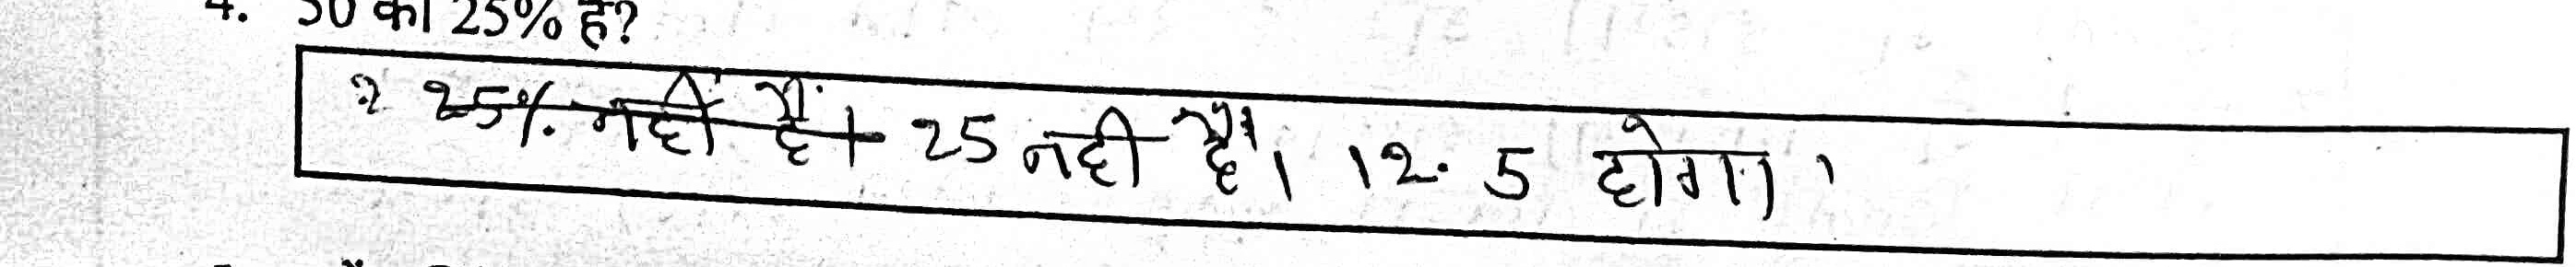 4. 50 का 25% है?
2 25% नहीं है। 25 नही है। 12.5 होगा।